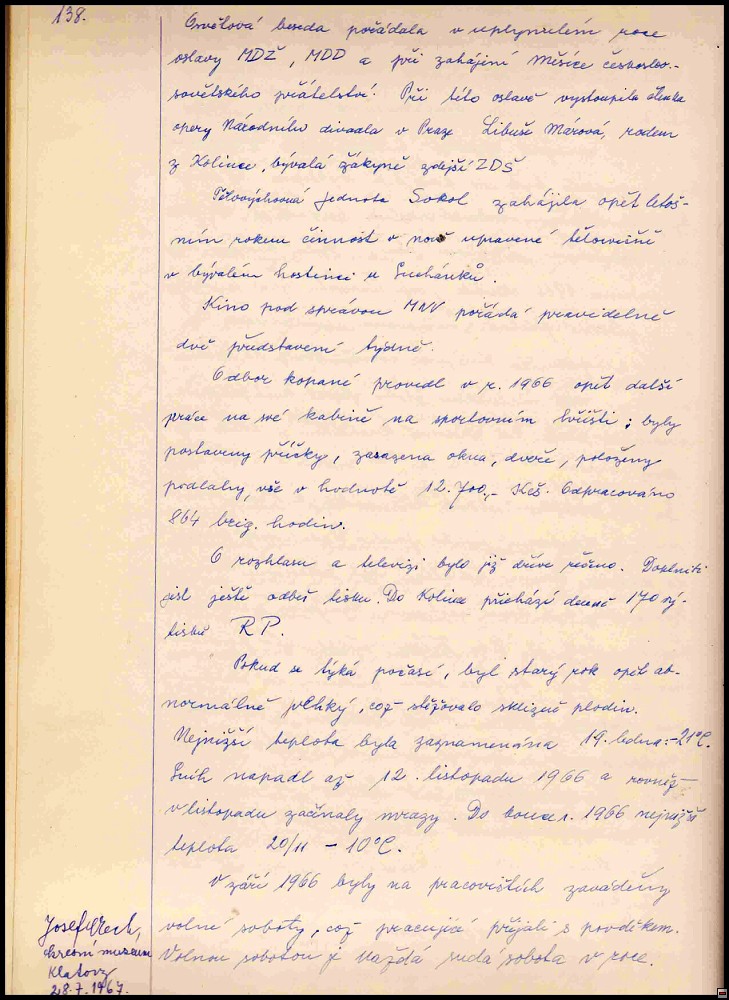 138.
Osvětová beseda pořádala v uplynulém roce
oslavy MDŽ, MDD a při zahájení Měsíce českoslov.-
sovětského přátelství. Při této oslavě vystoupila členka
opery Národního divadla v Praze Libuše Márová, rodem
z Kolince, bývalá žákyně zdejší ZDŠ
Tělovýchovná jednota Sokol zahájila opět letoš-
ním rokem činnost v nově upravené tělocvičně
v bývalém hostinci u Suchánků.
Kino pod správou MNV pořádá pravidelně
dvě představení týdně.
Odbor kopané provedl v r. 1966 opět další
práce na své kabině na sportovním hřišti; byly
postaveny příčky, zasazena okna, dveře, položeny
podlahy, vše v hodnotě 12.700,- Kčs. Odpracováno
864 brig. hodin.
O rozhlasu a televizi bylo již dříve řečeno. Doplniti
jest ještě odběr tisku. Do Kolince přichází denně 170 vý-
tisků RP.
Pokud se týká počasí, byl starý rok opět ab-
normálně vlhký, což stěžovalo sklizně plodin.
Nejnižší teplota byla zaznamenána 19. ledna: -21°C.
Sníh napadl až 12. listopadu 1966 a rovněž
v listopadu začínaly mrazy. Do konce r. 1966 nejnižší
teplota 20/11 - 10°C.
V září 1966 byly na pracovištích zaváděny
volné soboty, což pracující přijali s povděkem.
Volnou sobotou je každá sudá sobota v roce.
Josef
okresní muzeum
Klatovy
28.7.1967.